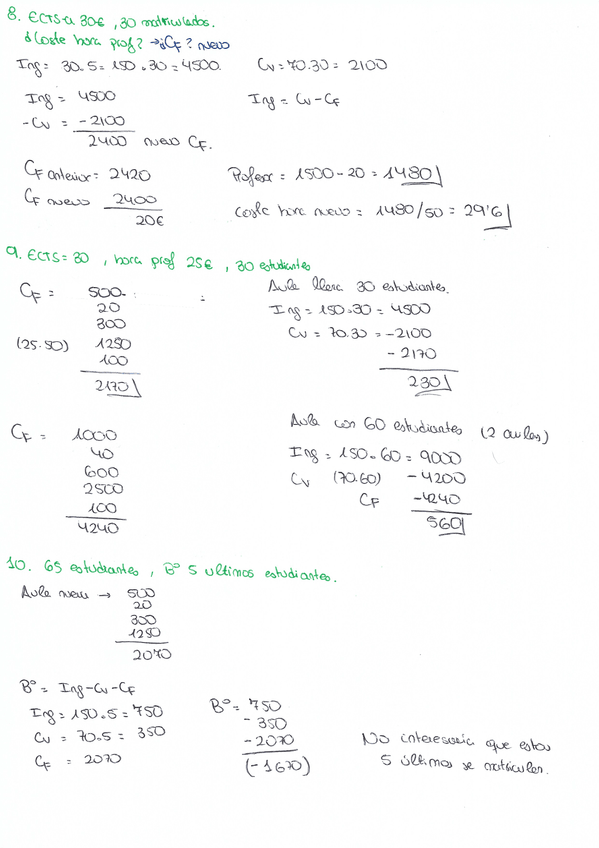 8. ECTS a 30€, 30 matriculados.
¿Coste hora prof? → ¿CF? nuevo
Ing = 30.5 = 150 . 30 = 4500. CV = 70.30 = 2100
Ing = 4500 Ing = CV - CF
- CV = - 2100
2400 nuevo CF.
CF anterior = 2420 Profesor = 1500 - 20 = 1480
CF nuevo 2400
20€ coste hora nuevo = 1480/50 = 29'6
9. ECTS = 30, hora prof 25€, 30 estudiantes
CF = 500 Aula llena 30 estudiantes.
20 Ing = 150.30 = 4500
300 CV = 70.30 = -2100
(25.50) 1250 - 2170
100 230
2170
CF = 1000 Aula con 60 estudiantes (2 aulas)
40 Ing = 150.60 = 9000
600 CV (70.60) - 4200
2500 CF - 4240
100 560
4240
10. 65 estudiantes, Bº 5 ultimos estudiantes.
Aula nueva → 500
20
300
1250
2070
Bº = Ing - CV - CF
Ing = 150.5 = 750 Bº = 750
CV = 70.5 = 350 - 350
CF = 2070 - 2070
(- 1670)
No interesaria que estos
5 últimos se matriculen.